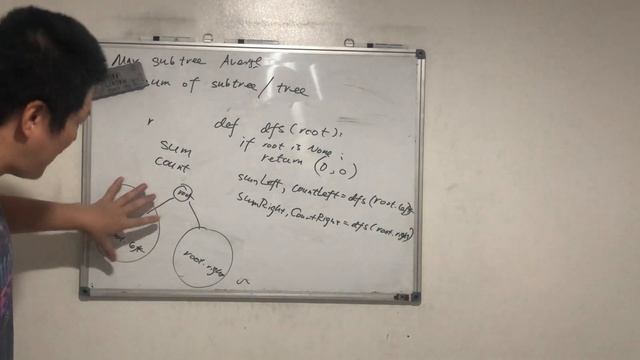 Max subtree Averge
sum of subtree/tree
r
def dfs(root):
if root is None:
return (0,0)
sum
count
sumLeft, countLeft=dfs(root.left)
SumRight, CountRight=dfs(root.right)
root
left
root.right